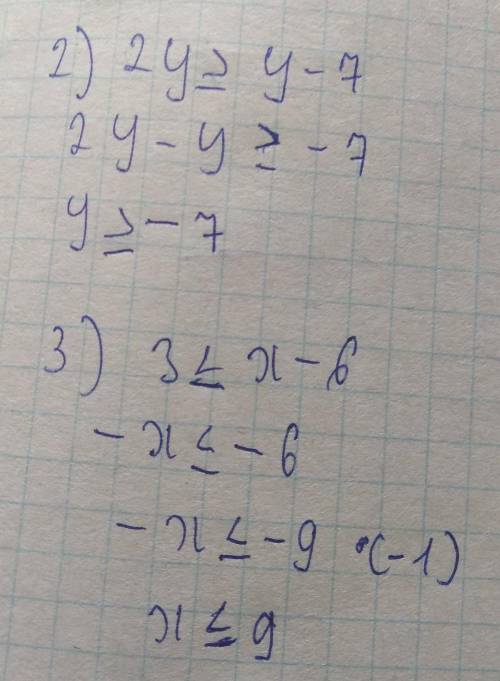 2) 2y ≥ y - 7
2y - y ≥ - 7
y ≥ - 7
3) 3 ≤ x - 6
- x ≤ - 6
- x ≤ - 9 •(-1)
x ≤ 9